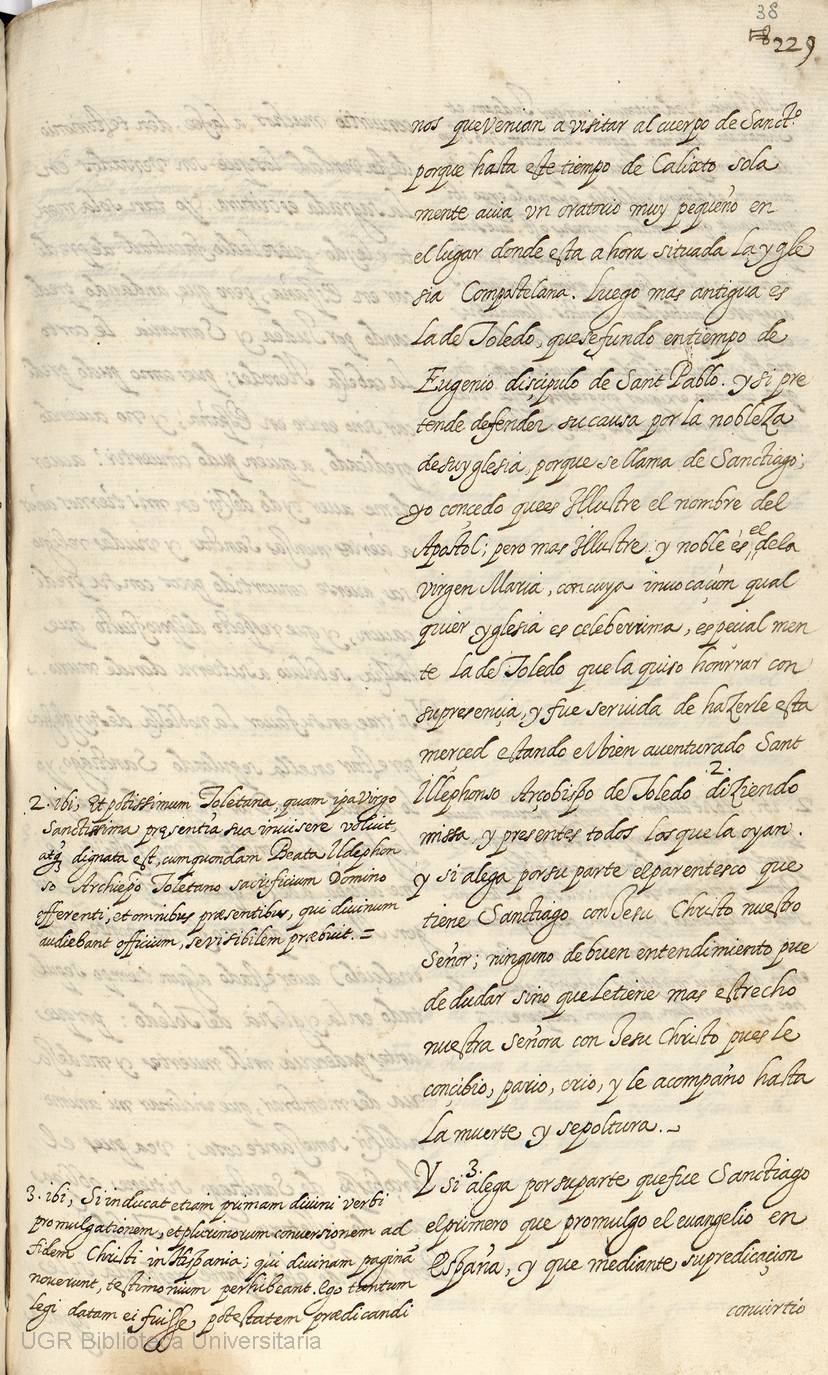 38
229
nos que venian a visitar al cuerpo de Sanct.º
porque hasta este tiempo de Calixto sola
mente auia vn oratorio muy pequeño en
el lugar donde esta ahora situada la ygle
sia Compostelana. Luego mas antigua es
la de Toledo, que se fundo en tiempo de
Eugenio discipulo de Sant Pablo. y si pre
tende defender su causa por la nobleza
de su yglesia, porque se llama de Sanctiago;
yo concedo que es Illustre el nombre del
Apostol; pero mas Illustre y noble es el de la
virgen Maria, con cuya inuocaçion qual
quier yglesia es celeberrima, especial men
te la de Toledo que la quiso honrrar con
su presençia, y fue seruida de hazerle esta
merced estando el bien auenturado Sant
Illephonso Arçobispo de Toledo .2. diziendo
missa, y presentes todos los que la oyan.
y si alega por su parte el parentesco que
tiene Sanctiago con Jesu Christo nuestro
Señor; ninguno de buen entendimiento pue
de dudar sino que le tiene mas estrecho
nuestra Señora con Jesu Christo pues le
conçibio, pario, crio, y le acompaño hasta
la muerte y sepoltura.-
Y si .3. alega por su parte que fue Sanctiago
el primero que promulgo el euangelio en
España, y que mediante su predicaçion
conuirtio
2. ibi, Et potissimum Toletana, quam ipa Virgo
Sanctissima præsentia sua inuisere voluit,
atq3 dignata est, cum quondam Beato Ildephon
so Archiepo Toletano sacrificium Domino
offerenti, et omnibus præsentibus, qui diuinum
audiebant officium, se visibilem præbuit. =
3. ibi, Si inducat etiam primam diuini verbi
promulgationem, et plurimorum conuersionem ad
fidem Christi in Hispania; qui diuinam paginã
nouerunt, testimonium perhibeant. Ego tantum
legi datam ei fuisse potestatem prædicandi
UGR Biblioteca Universitaria